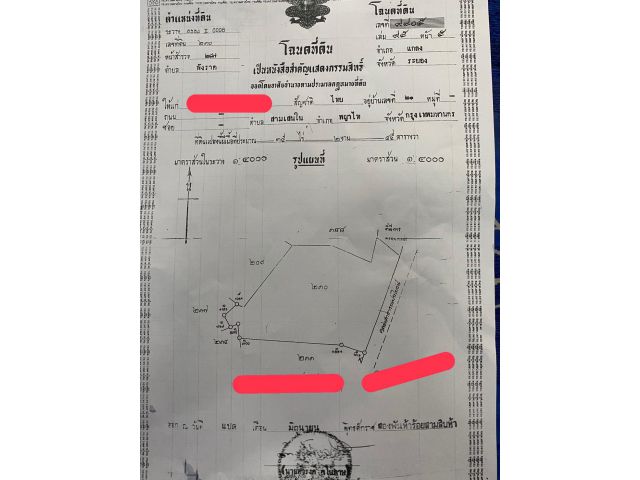 ตำแหน่งที่ดิน
ระวาง
เลขที่ดิน ๒๓๐
หน้าสำรวจ ๒๘๗
ตำบล พังราด
โฉนดที่ดิน
เป็นหนังสือสำคัญแสดงกรรมสิทธิ์
ออกโดยอาศัยอำนาจตามประมวลกฎหมายที่ดิน
โฉนดที่ดิน
เลขที่ ๙๙๐๕
เล่ม ๙๕ หน้า ๕
อำเภอ แกลง
จังหวัด ระยอง
ให้แก่ สัญชาติ ไทย อยู่บ้านเลขที่ ๒๑ หมู่ที่ –
ถนน – ซอย – ตำบล สามเสนใน อำเภอ พญาไท จังหวัด กรุงเทพมหานคร
ที่ดินแปลงนี้มีเนื้อที่ประมาณ ๓๕ ไร่ ๒ งาน ๔๕ ตารางวา
มาตราส่วนในระวาง ๑:๔๐๐๐ รูปแผนที่ มาตราส่วน ๑:๔๐๐๐
น
๓๕๘
๒๐๙
๒๓๐
๒๓๗
๒๓๘
๒๓๑
ออก ณ วันที่ แปด เดือน มิถุนายน พุทธศักราช สองพันห้าร้อยสามสิบห้า